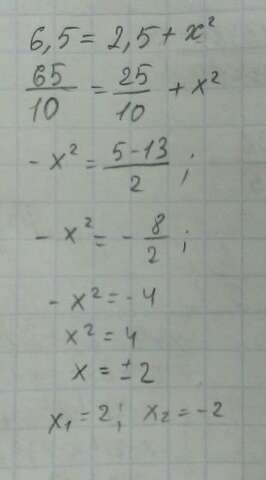 6,5 = 2,5 + x²
65/10 = 25/10 + x²
- x² = 5-13/2 ;
- x² = - 8/2 ;
- x² = - 4
x² = 4
x = ± 2
x₁ = 2 ; x₂ = -2